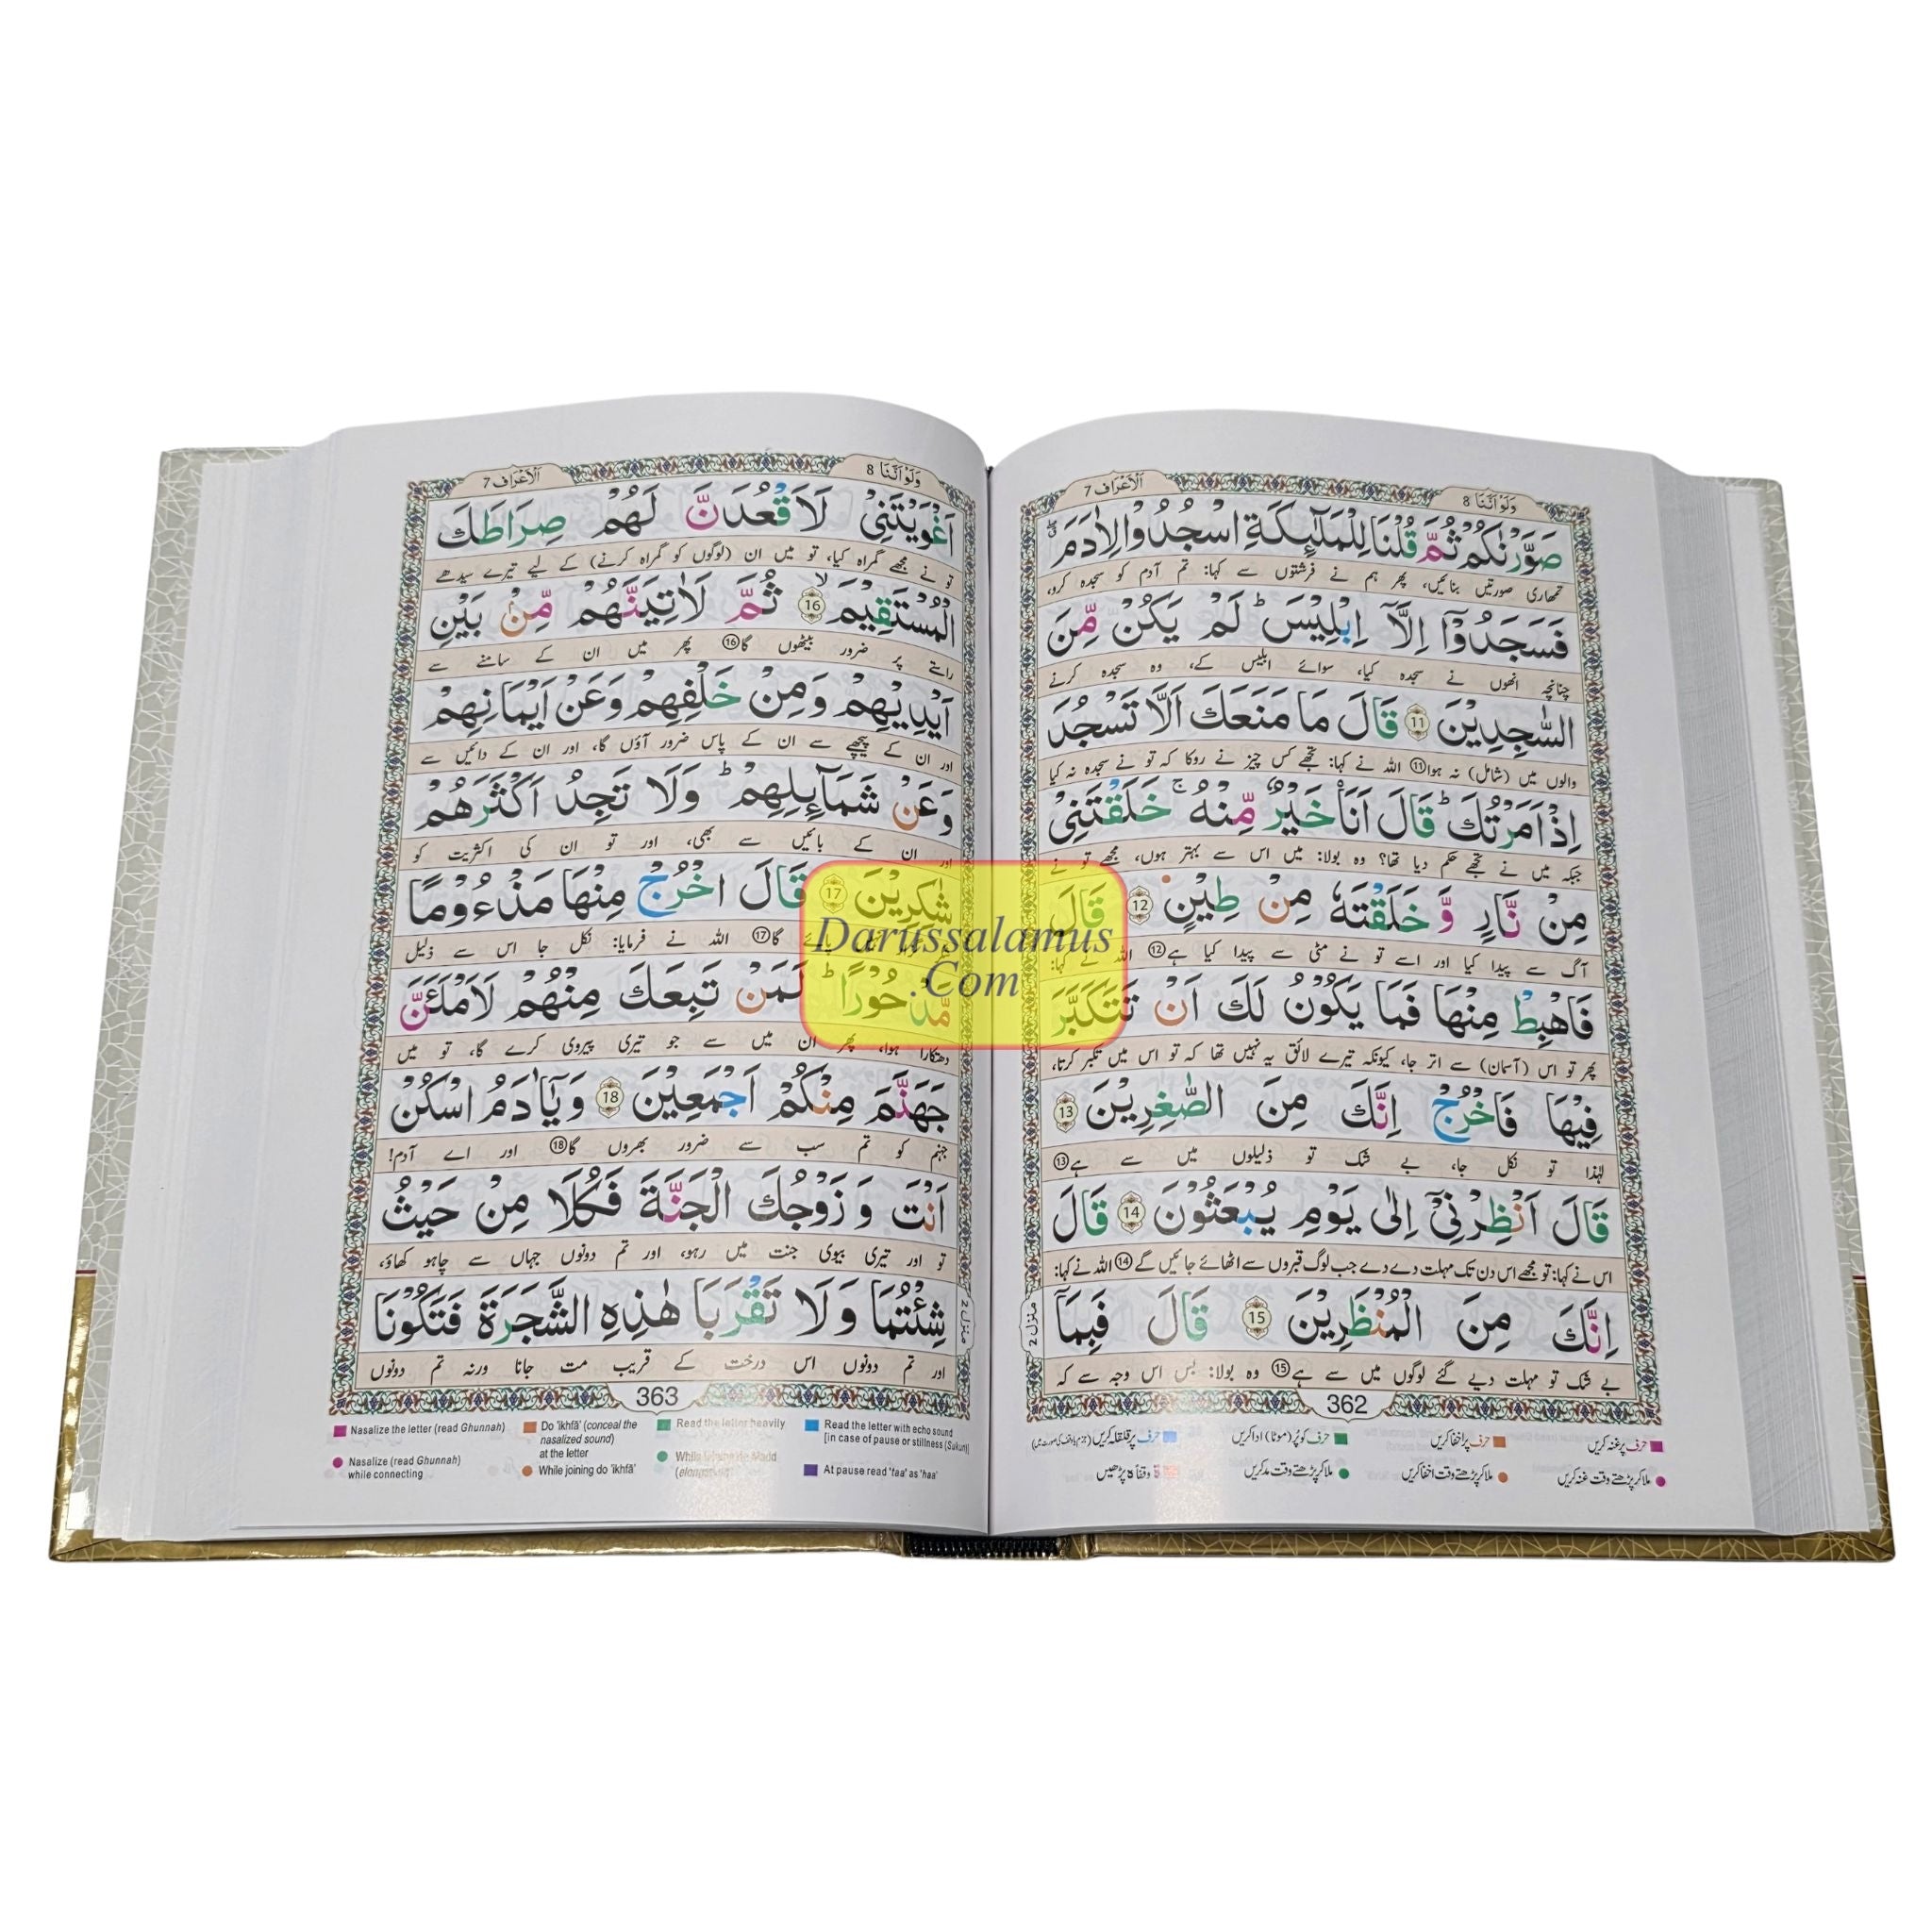 وَلَوْ اَنَّنَا 8
اَلْاَعْرَاف 7
صَوَّرْنٰكُمْ ثُمَّ قُلْنَا لِلْمَلٰٓئِكَةِ اسْجُدُوْا لِاٰدَمَ ۖ
تمھاری صورتیں بنائیں، پھر ہم نے فرشتوں سے کہا: تم آدم کو سجدہ کرو،
فَسَجَدُوْۤا اِلَّاۤ اِبْلِيْسَ ؕ لَمْ يَكُنْ مِّنَ
چنانچہ انھوں نے سجدہ کیا، سوائے ابلیس کے، وہ سجدہ کرنے
السّٰجِدِيْنَ 11 قَالَ مَا مَنَعَكَ اَلَّا تَسْجُدَ
والوں میں (شامل) نہ ہوا⑪ اللہ نے کہا: تجھے کس چیز نے روکا کہ تو نے سجدہ نہ کیا
اِذْ اَمَرْتُكَ ؕ قَالَ اَنَا خَيْرٌ مِّنْهُ ۚ خَلَقْتَنِىْ
جبکہ میں نے تجھے حکم دیا تھا؟ وہ بولا: میں اس سے بہتر ہوں، مجھے تو نے
مِنْ نَّارٍ وَّ خَلَقْتَهٗ مِنْ طِيْنٍ 12 قَالَ
آگ سے پیدا کیا اور اسے تو نے مٹی سے پیدا کیا ہے⑫ اللہ نے کہا:
فَاهْبِطْ مِنْهَا فَمَا يَكُوْنُ لَكَ اَنْ تَتَكَبَّرَ
پھر تو اس (آسمان) سے اتر جا، کیونکہ تیرے لائق یہ نہیں تھا کہ تو اس میں تکبر کرتا،
فِيْهَا فَاخْرُجْ اِنَّكَ مِنَ الصّٰغِرِيْنَ 13
لہٰذا تو نکل جا، بے شک تو ذلیلوں میں سے ہے⑬
قَالَ اَنْظِرْنِىْۤ اِلٰى يَوْمِ يُبْعَثُوْنَ 14 قَالَ
اس نے کہا: تو مجھے اس دن تک مہلت دے دے جب لوگ قبروں سے اٹھائے جائیں گے⑭ اللہ نے کہا:
اِنَّكَ مِنَ الْمُنْظَرِيْنَ 15 قَالَ فَبِمَاۤ
بے شک تو مہلت دیے گئے لوگوں میں سے ہے⑮ وہ بولا: بس اس وجہ سے کہ
منزل 2
362
حرف پر غنہ کریں
حرف پر اخفا کریں
حرف کو پُر (موٹا) ادا کریں
حرف پر قلقلہ کریں
ملا کر پڑھتے وقت غنہ کریں
ملا کر پڑھتے وقت اخفا کریں
ملا کر پڑھتے وقت مد کریں
ة وقفاً ہ پڑھیں
وَلَوْ اَنَّنَا 8
اَلْاَعْرَاف 7
اَغْوَيْتَنِىْ لَاَقْعُدَنَّ لَهُمْ صِرَاطَكَ
تو نے مجھے گمراہ کیا، تو میں ان (لوگوں کو گمراہ کرنے) کے لیے تیرے سیدھے
الْمُسْتَقِيْمَ 16 ثُمَّ لَاٰتِيَنَّهُمْ مِّنْۢ بَيْنِ
راستے پر ضرور بیٹھوں گا⑯ پھر میں ان کے سامنے سے
اَيْدِيْهِمْ وَمِنْ خَلْفِهِمْ وَعَنْ اَيْمَانِهِمْ
اور ان کے پیچھے سے ان کے پاس ضرور آؤں گا، اور ان کے دائیں سے
وَعَنْ شَمَآئِلِهِمْ ؕ وَلَا تَجِدُ اَكْثَرَهُمْ
اور ان کے بائیں سے بھی، اور تو ان کی اکثریت کو
شٰكِرِيْنَ 17 قَالَ اخْرُجْ مِنْهَا مَذْءُوْمًا
پائے گا⑰ اللہ نے فرمایا: نکل جا اس سے ذلیل
مَّدْحُوْرًا ؕ لَمَنْ تَبِعَكَ مِنْهُمْ لَاَمْلَـَٔنَّ
دھتکارا ہوا، پھر ان میں سے جو تیری پیروی کرے گا، تو میں
جَهَنَّمَ مِنْكُمْ اَجْمَعِيْنَ 18 وَيٰۤاٰدَمُ اسْكُنْ
جہنم کو تم سب سے ضرور بھروں گا⑱ اور اے آدم!
اَنْتَ وَ زَوْجُكَ الْجَنَّةَ فَكُلَا مِنْ حَيْثُ
تو اور تیری بیوی جنت میں رہو، اور تم دونوں جہاں سے چاہو کھاؤ،
شِئْتُمَا وَلَا تَقْرَبَا هٰذِهِ الشَّجَرَةَ فَتَكُوْنَا
اور تم دونوں اس درخت کے قریب مت جانا ورنہ تم دونوں
منزل 2
363
Nasalize the letter (read Ghunnah)
Do 'ikhfā' (conceal the
nasalized sound)
at the letter
Read the letter heavily
Read the letter with echo sound
[in case of pause or stillness (Sukun)]
Nasalize (read Ghunnah)
while connecting
While joining do 'ikhfā'
At pause read 'taa' as 'haa'
Darussalamus
.Com